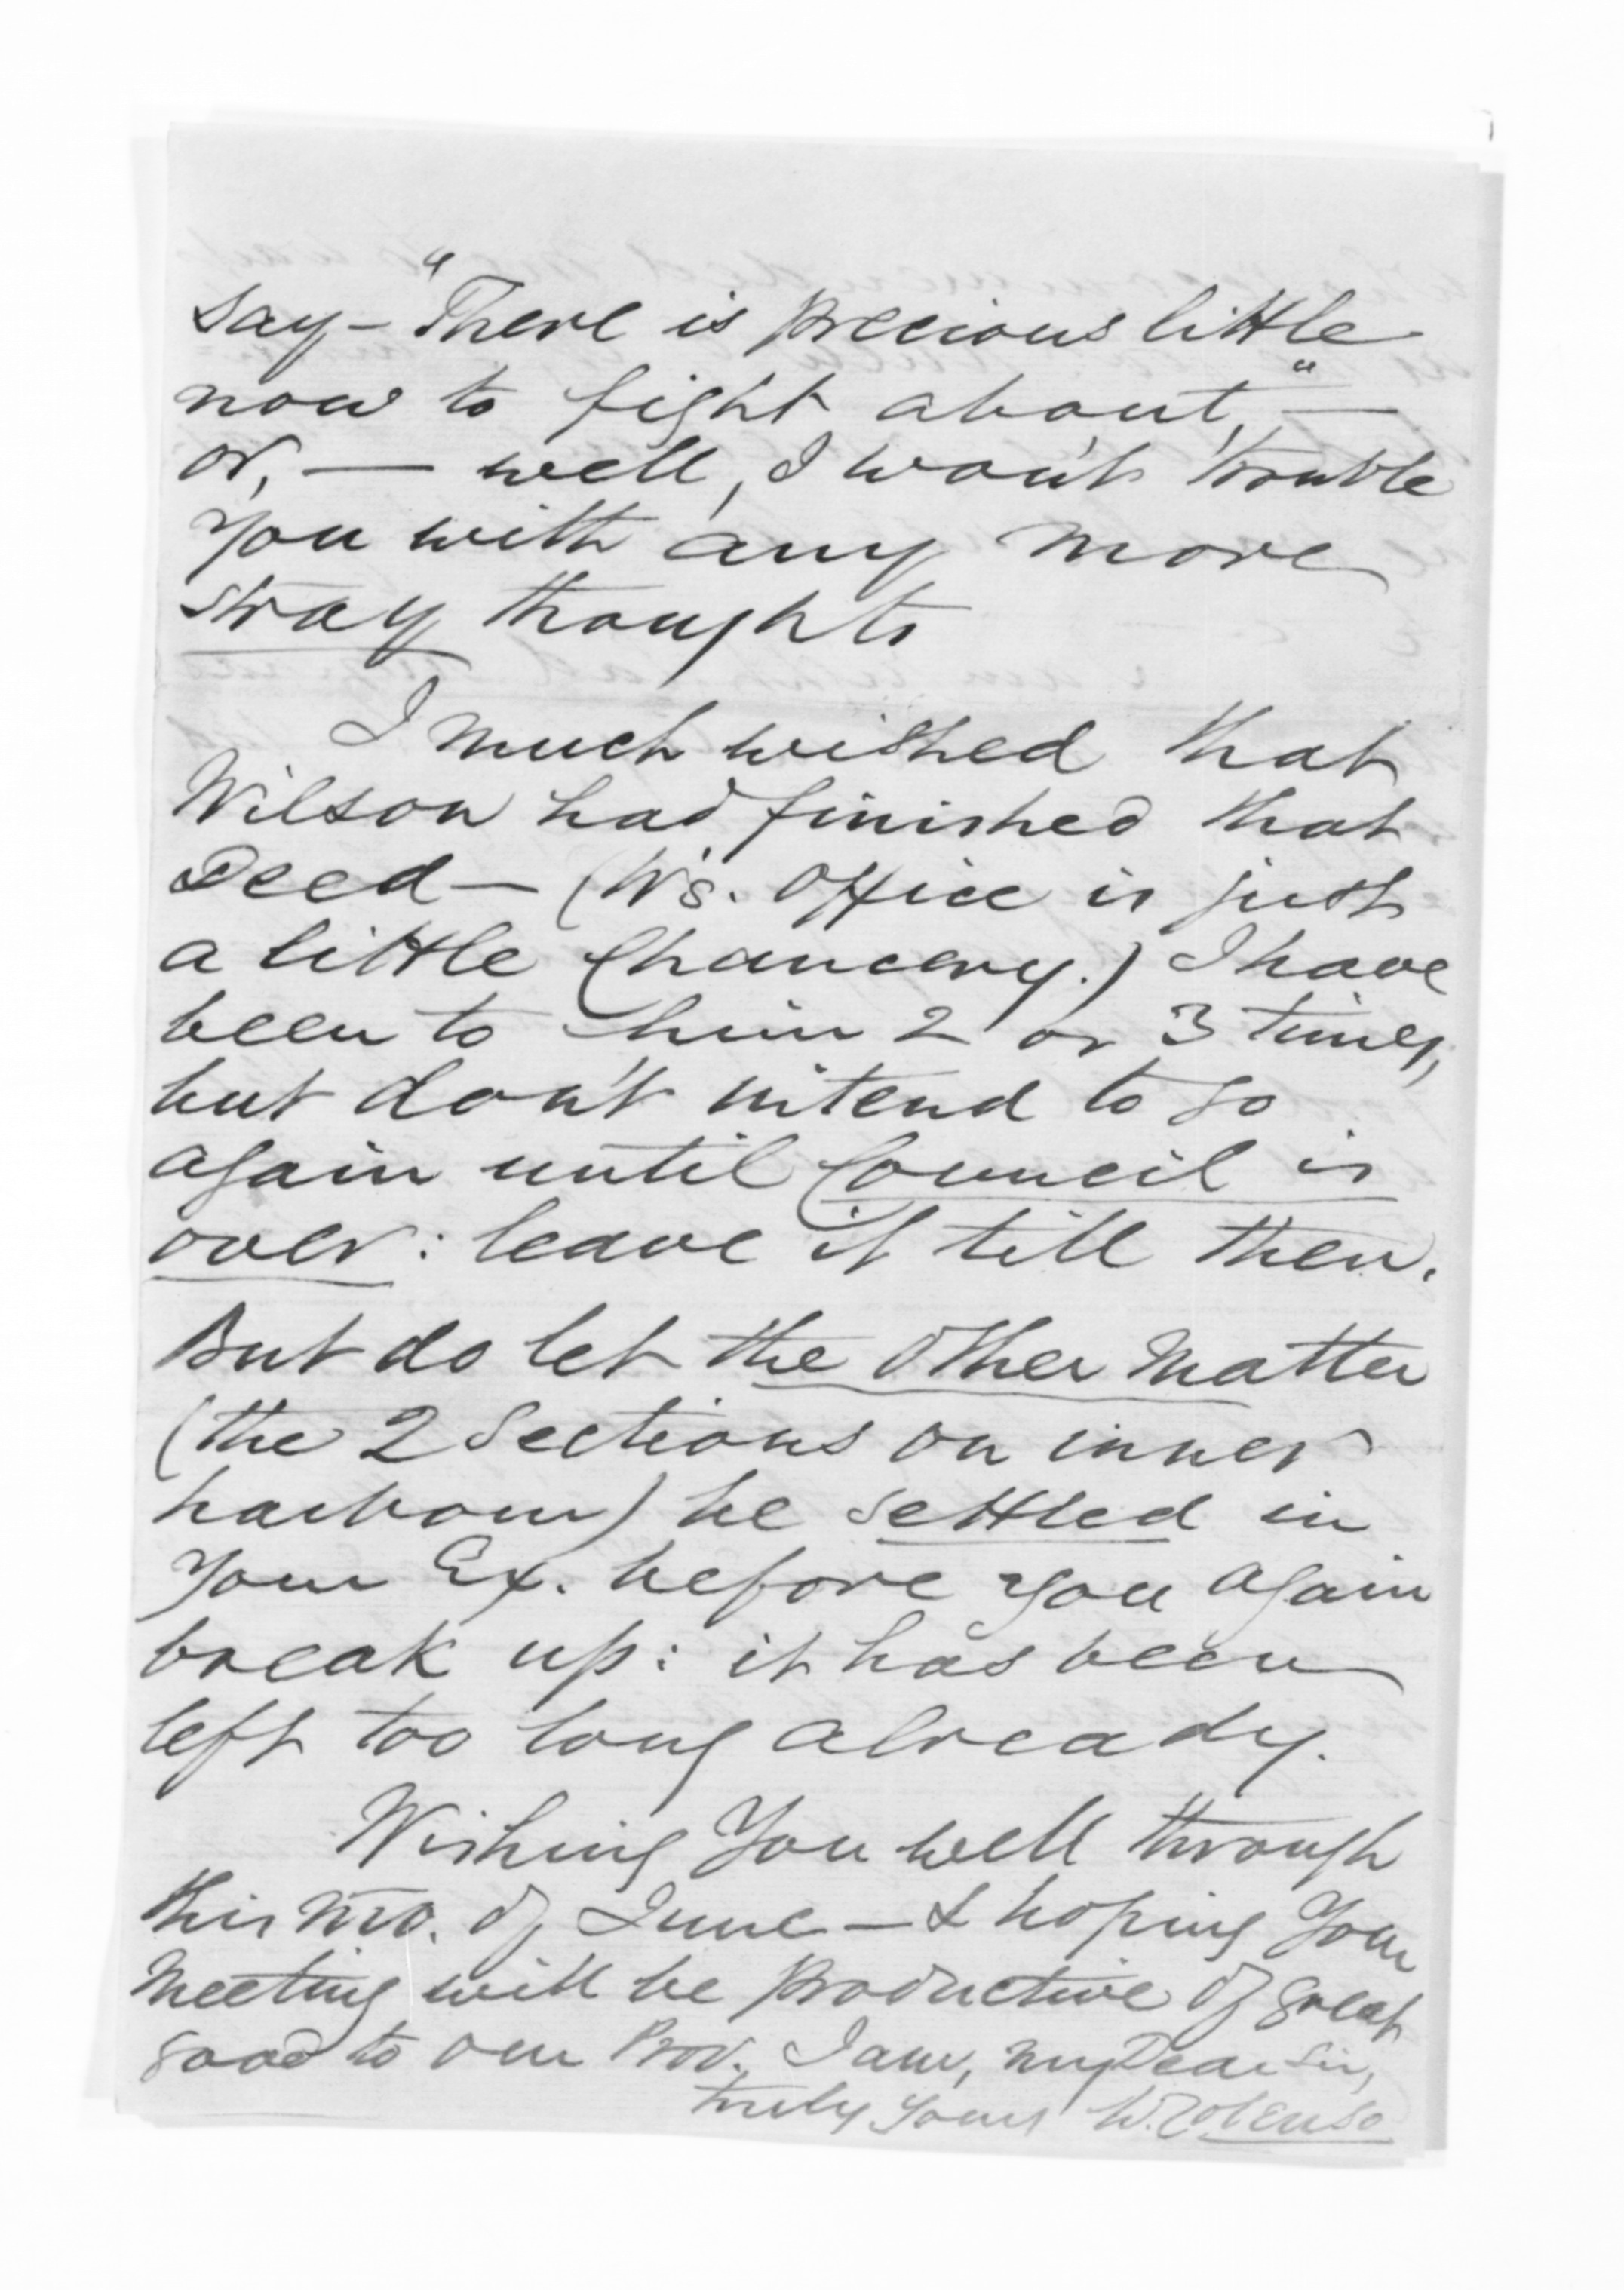 say – "There is precious little
now to fight about," –
or, — well, I won't trouble
you with any more
stray thoughts
I much wished that
Wilson had finished that
Deed – (W's. Office is just
a little Chancery.) I have
been to him 2 or 3 times,
but don't intend to go
again until Council is
over: leave it till then.
But do let the other matter
(the 2 Sections on inner
harbour) be settled in
your Ex. before you again
break up: it has been
left too long already.
Wishing You well through
this mo. of June – & hoping Your
Meeting will be productive of great
good to our Prov. I am, my Dear Sir,
truly yours W. Colenso